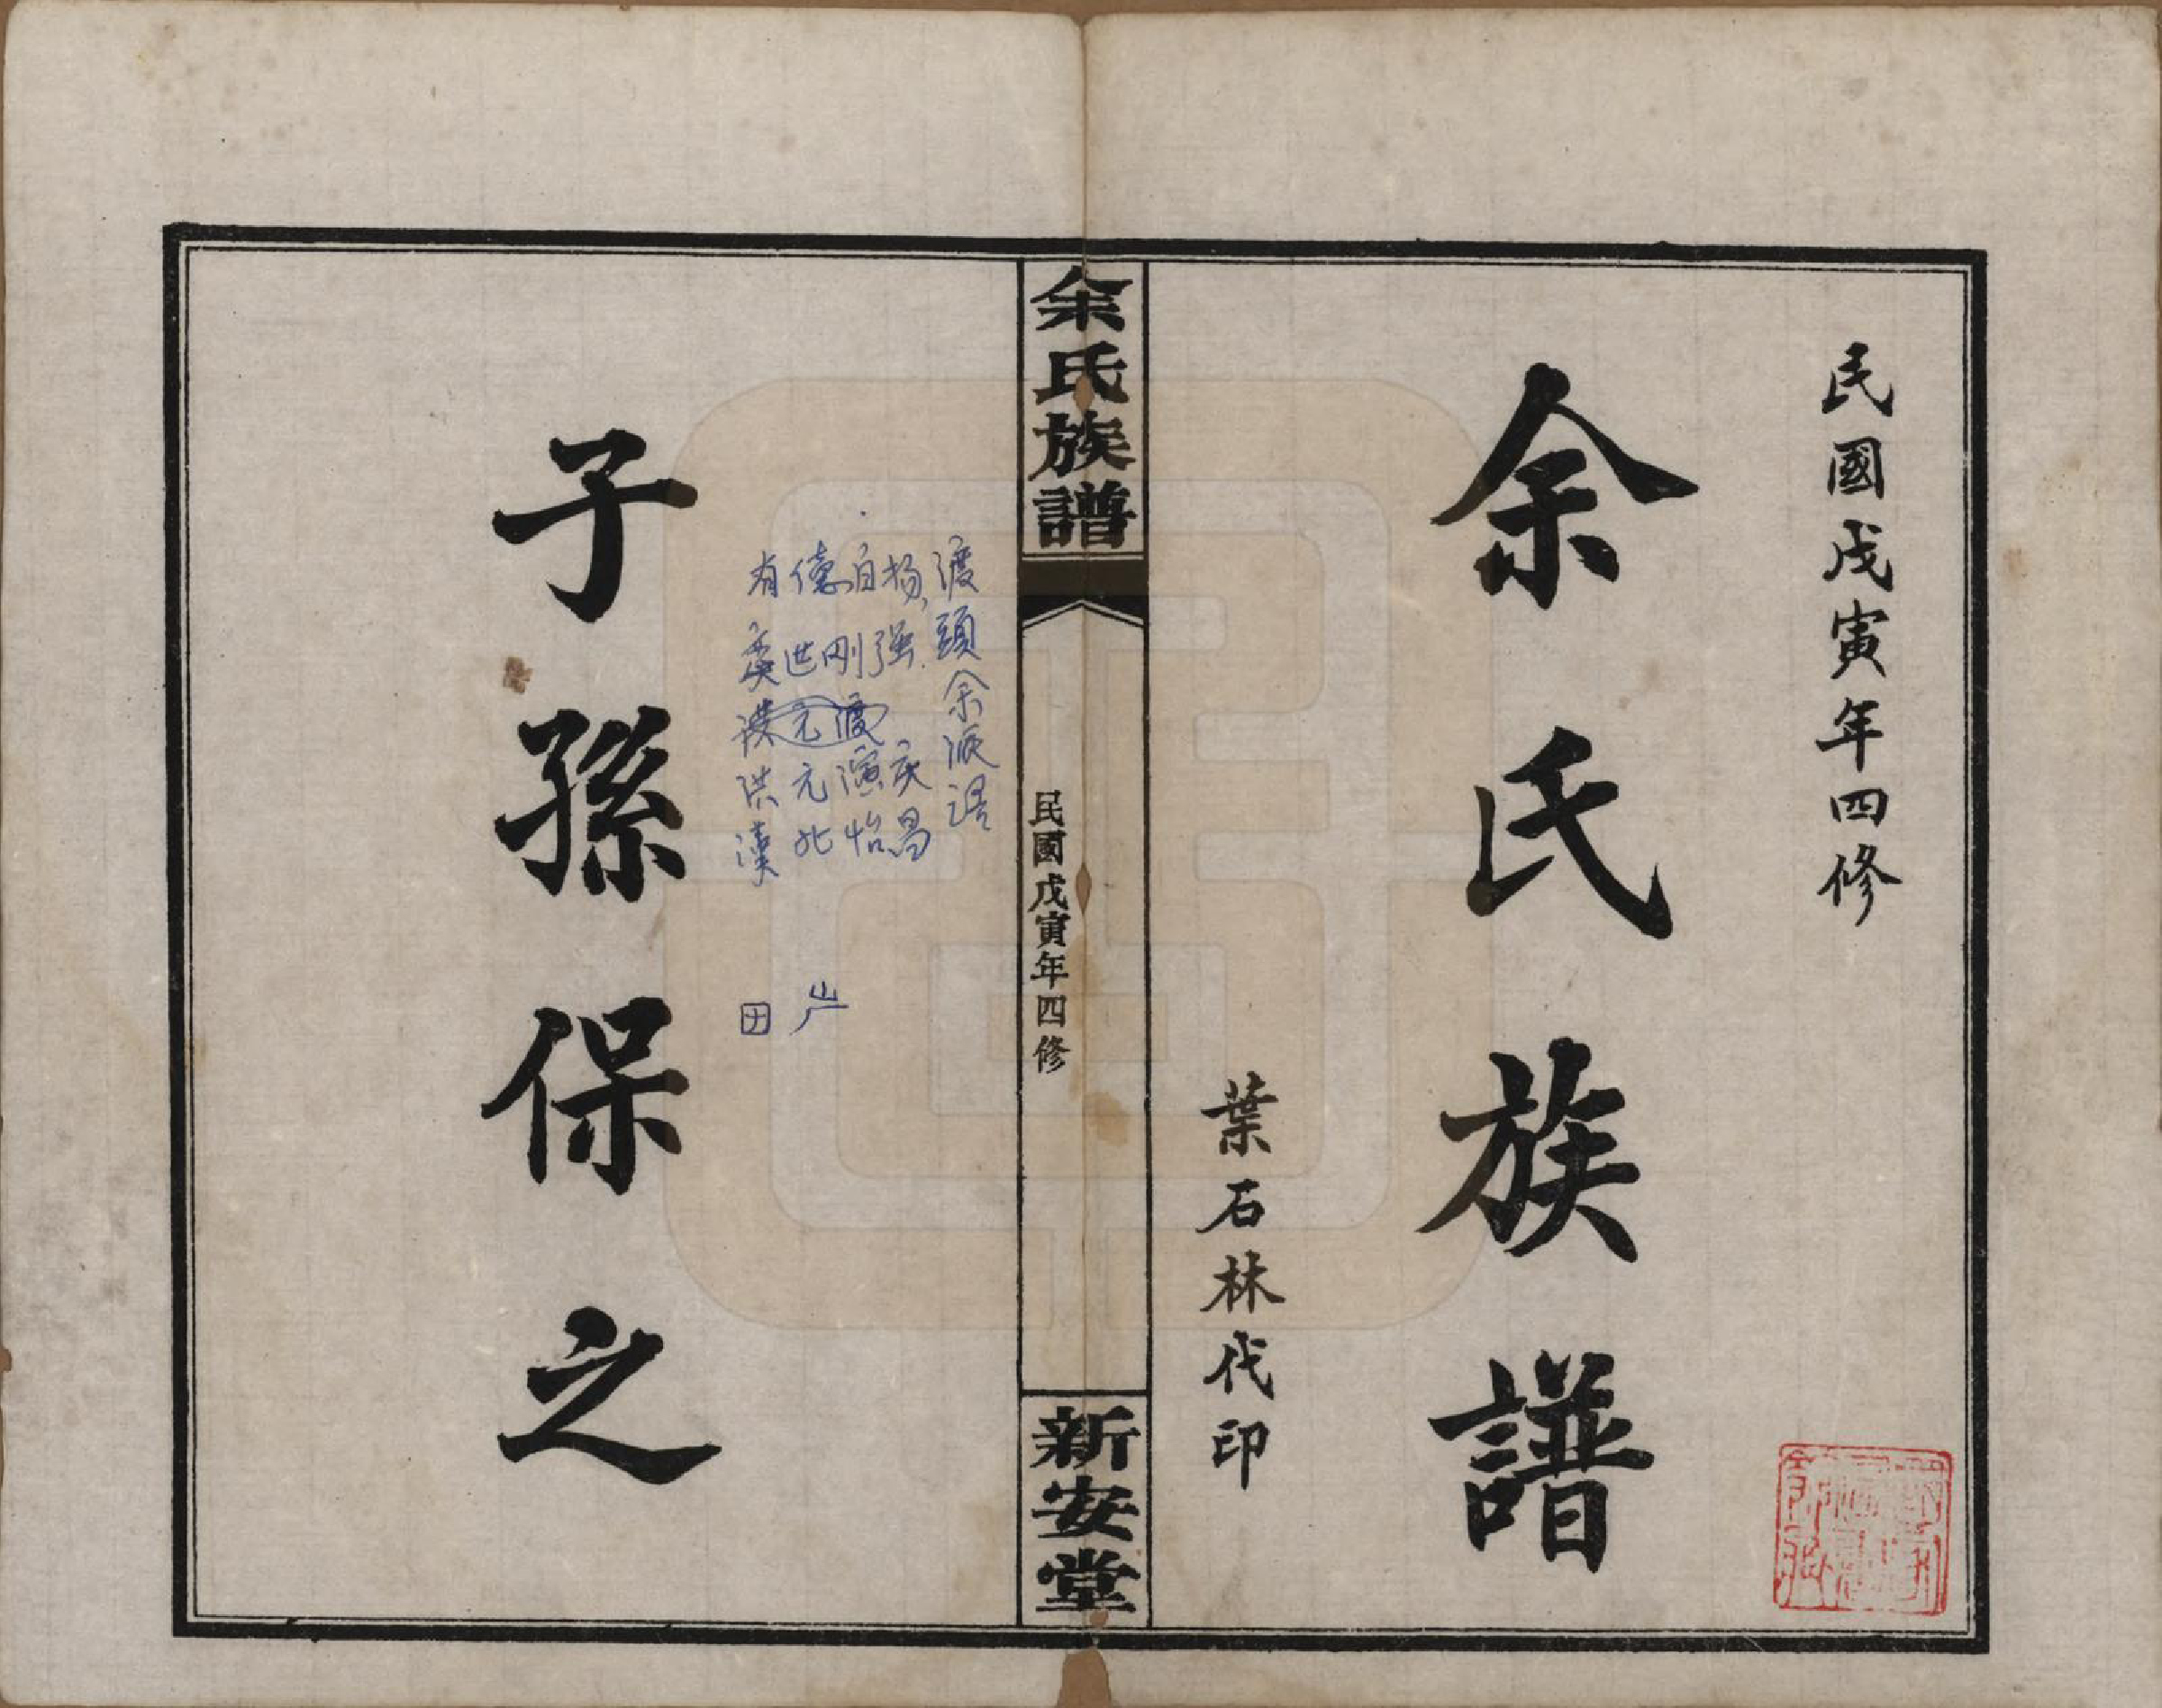 民國戊寅年四修
余氏族譜
葉石林代印
余氏族譜
民國戊寅年四修
新安堂
渡頭余派語
楊強 庆昌
自刚度演怡
德世元元北
有奕漢洪漢
山
田
子孫保之